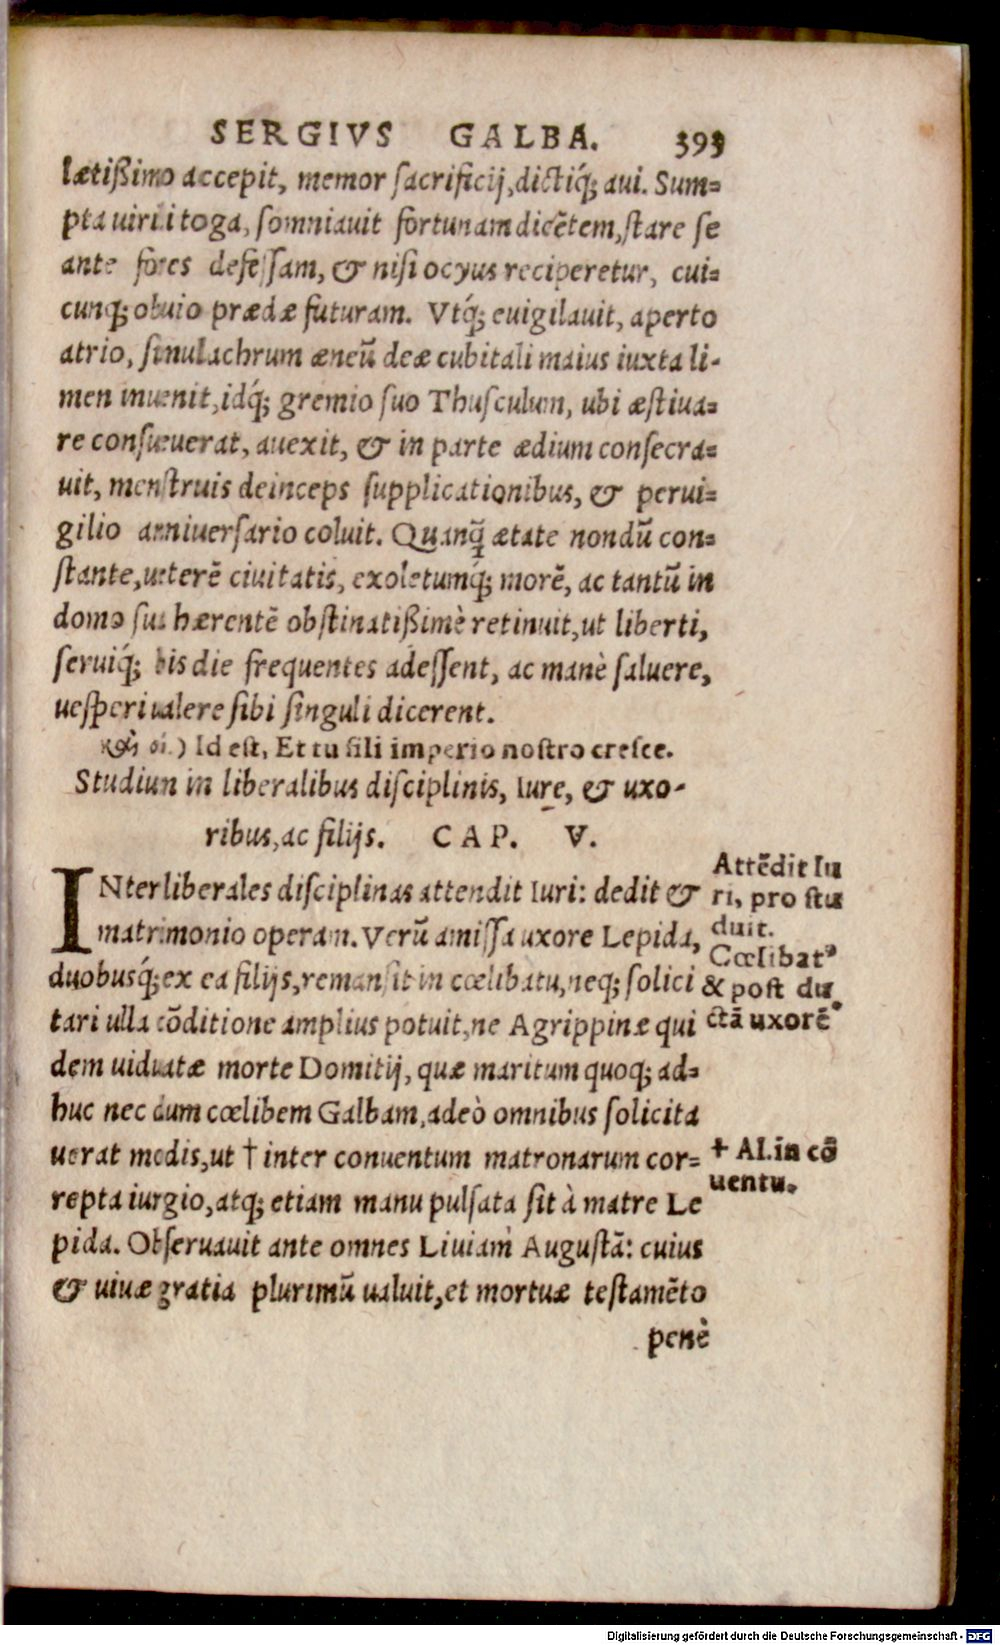 SERGIVS GALBA. 393
lætißimo accepit, memor sacrificij, dictiq́; aui. Sum=
pta uirili toga, somniauit fortunam dicẽtem, stare se
ante fores defessam, & nisi ocyus reciperetur, cui=
cunq; obuio prædæ futuram. Vtq́; euigilauit, aperto
atrio, simulachrum æneũ deæ cubitali maius iuxta li-
men inuenit, idq́; gremio suo Thusculum, ubi æstiua=
re consueuerat, auexit, & in parte ædium consecra=
uit, menstruis deinceps supplicationibus, & perui=
gilio anniuersario coluit. Quanq̃ ætate nondũ con=
stante, ueterẽ ciuitatis, exoletumq́; morẽ, ac tantũ in
domo sua hærentẽ obstinatißimè retinuit, ut liberti,
seruiq́; bis die frequentes adessent, ac manè saluere,
uesperi ualere sibi singuli dicerent.
καὶ σὺ.) Id est, Et tu fili imperio nostro cresce.
Studium in liberalibus disciplinis, Iure, & uxo-
ribus, ac filijs. CAP. V.
INter liberales disciplinas attendit Iuri: dedit &
matrimonio operam. Verũ amissa uxore Lepida,
duobusq́; ex ea filijs, remansit in cœlibatu, neq; solici
tari ulla cõditione amplius potuit, ne Agrippinæ qui
dem uiduatæ morte Domitij, quæ maritum quoq; ad=
huc nec dum cœlibem Galbam, adeò omnibus solicita
uerat modis, ut † inter conuentum matronarum cor=
repta iurgio, atq; etiam manu pulsata sit à matre Le
pida. Obseruauit ante omnes Liuiam Augustã: cuius
& uiuæ gratia plurimũ ualuit, et mortuæ testamẽto
penè
Attẽdit Iu
ri, pro stu
duit.
Cœlibatꝰ
& post du
ctã uxorẽ
† Al. in cõ
uentu.
Digitalisierung gefördert durch die Deutsche Forschungsgemeinschaft - DFG